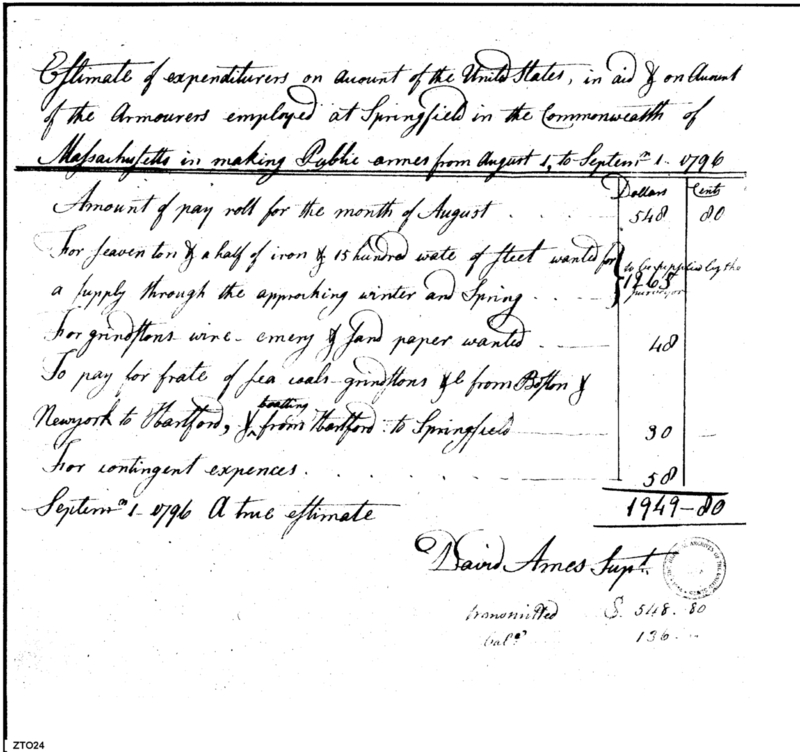 Estimate of expenditurers on account of the United States, in aid & on Amount
of the Armourers employed at Springfield in the Commonwealth of
Massachusetts in making Public armes from August 1, to Septemr 1 - 1796
Dollars Cents
Amount of pay roll for the month of August 548 80
For seaven ton & a half of iron & 15 hundred wate of steel wanted for
to be supplied by the
1265
purveyor
a supply through the approcking winter and Spring
For grindstons wire - emery & sand paper wanted 48
To pay for frate of sea coals - grindstons &c from Boston &
boatting
Newyork to Hartford, & from Hartford to Springfield 30
For contingent expences 58
Septemr 1 - 1796 A true estimate 1949-80
David Ames Supt.
transmitted $ 548.80
bale 136
ZTO24